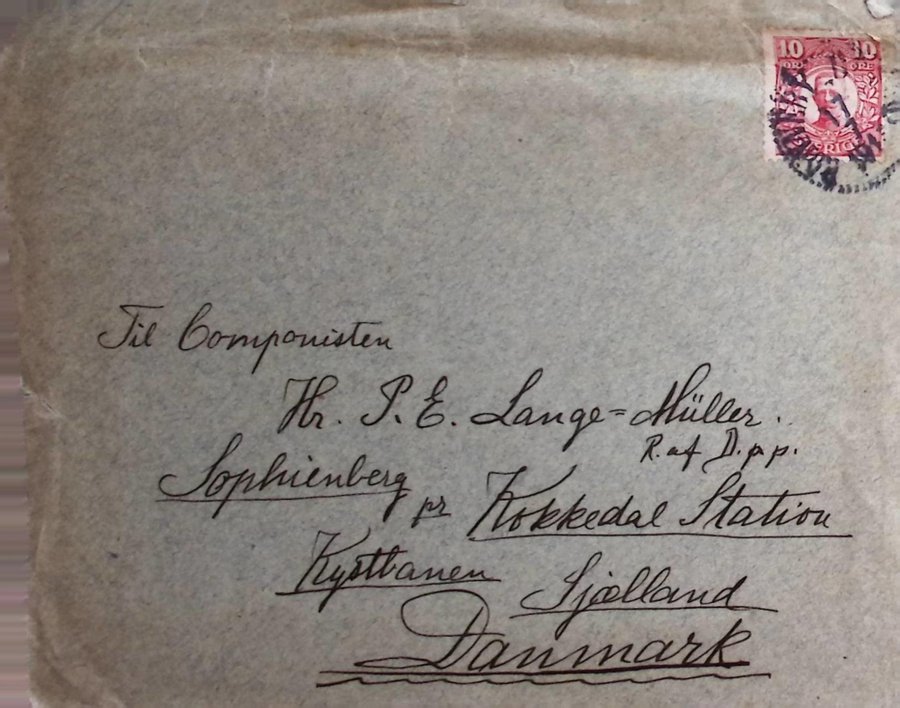 10 10
ÖRE
SVERIGE
Til Componisten
Hr. P. E. Lange=Müller.
R. af D. p. p.
Sophienberg pr Kokkedal Station
Kystbanen Sjælland
Danmark